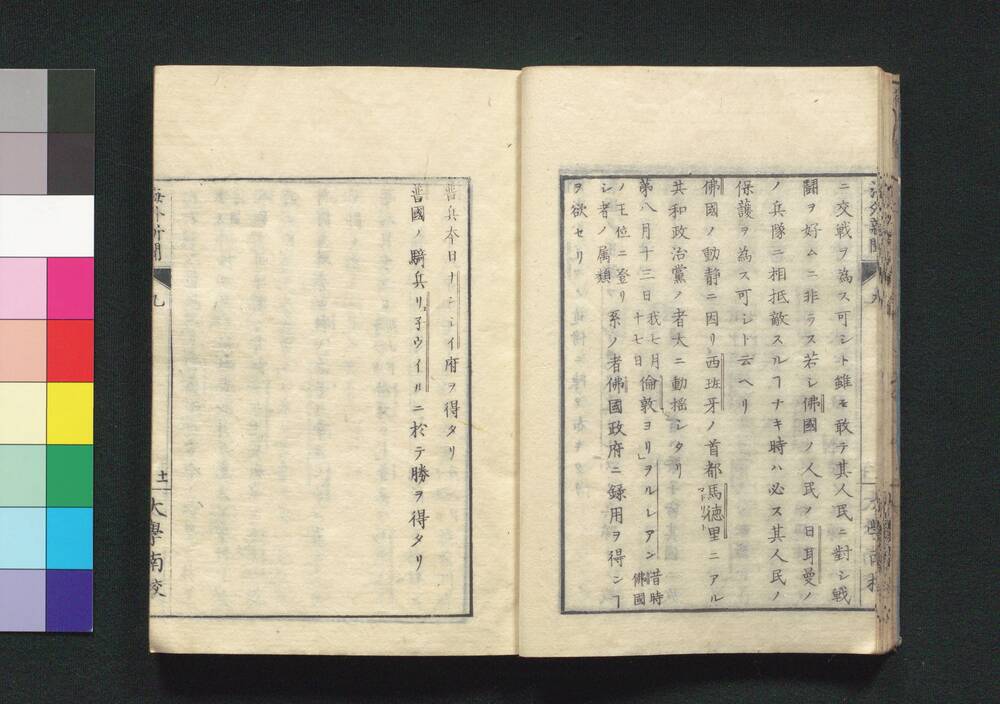 ニ交戦ヲ為ス可シト雖モ敢テ其人民ニ對シ戦
闘ヲ好ムニ非ラス若シ佛國ノ人民ノ日耳曼ノ
ノ兵隊ニ相抵敵スルヿナキ時ハ必ス其人民ノ
保護ヲ為ス可シト云ヘリ
佛國ノ動静ニ因リ西班牙ノ首都馬徳里ニアル
マトリット
共和政治黨ノ者大ニ動揺シタリ
第八月十三日我七月十七日倫敦ヨリ」ヲルレアン昔時佛國
ノ王位ニ登リシ者ノ属類系ノ者佛國政府ニ録用ヲ得ンヿ
ヲ欲セリ
九
普兵本日ナンシイ府ヲ得タリ
普國ノ騎兵リ子ウイルニ於テ勝ヲ得タリ
海外新聞
九
十二
大學南校